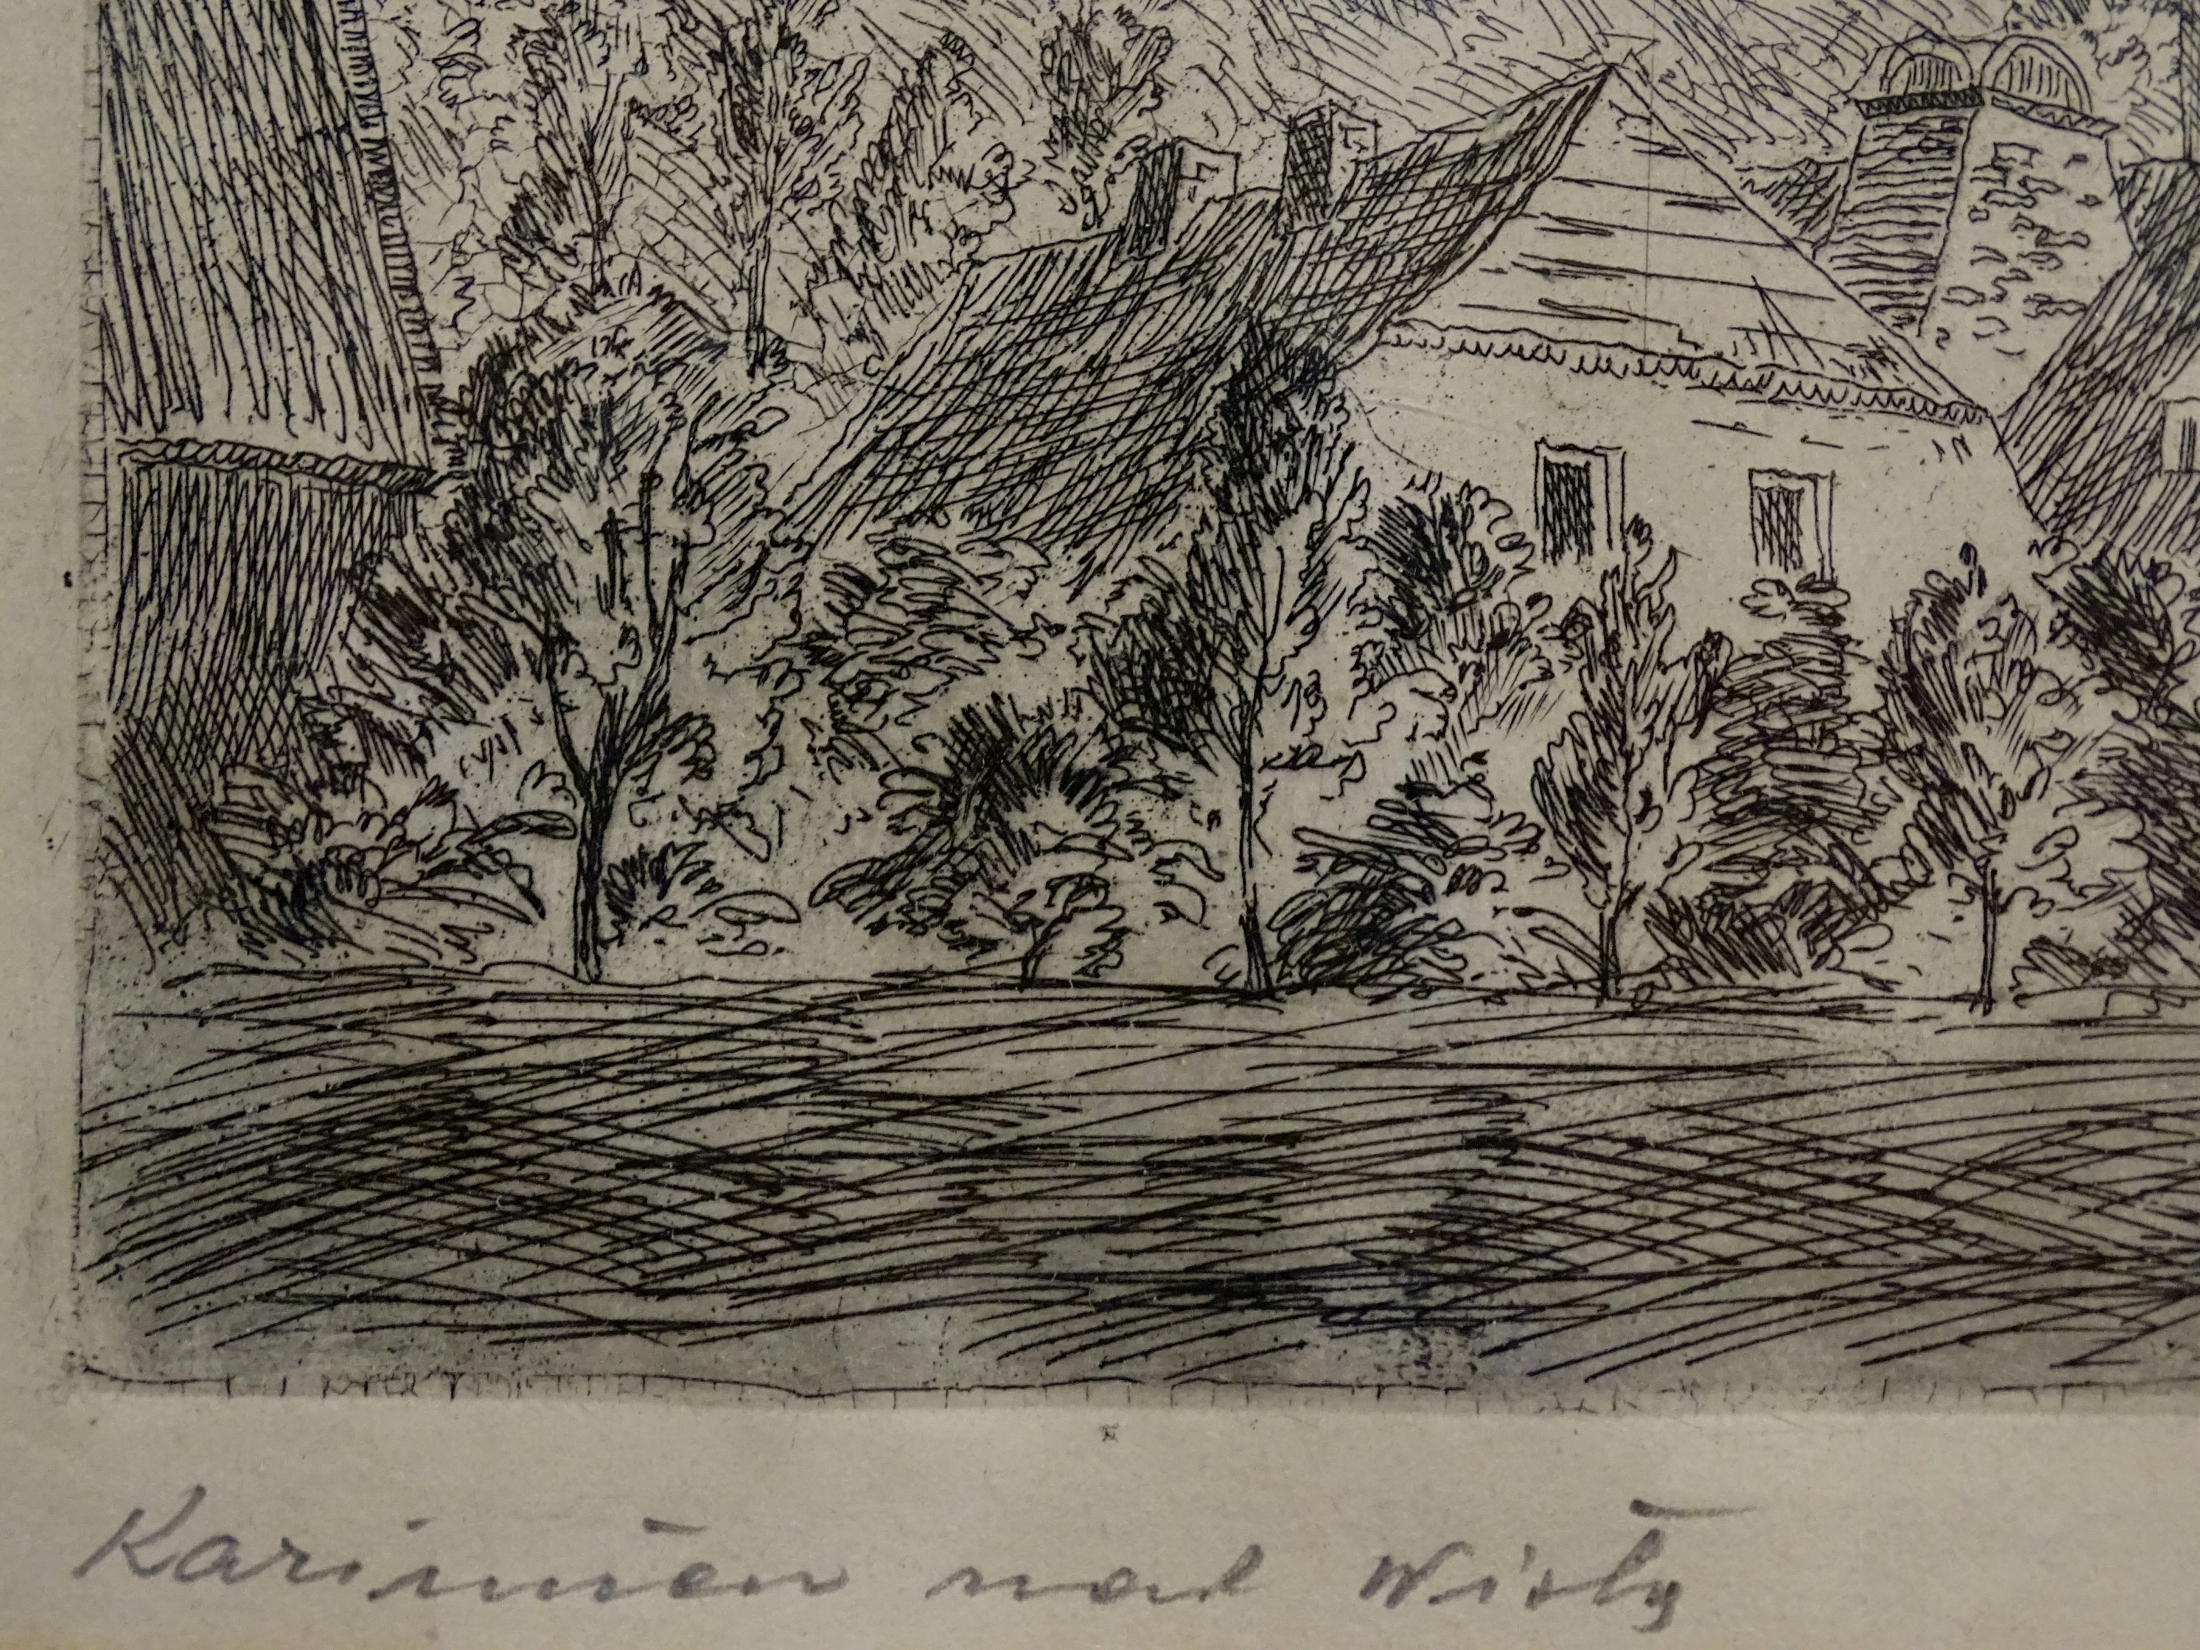 Kazimierz nad Wisłą